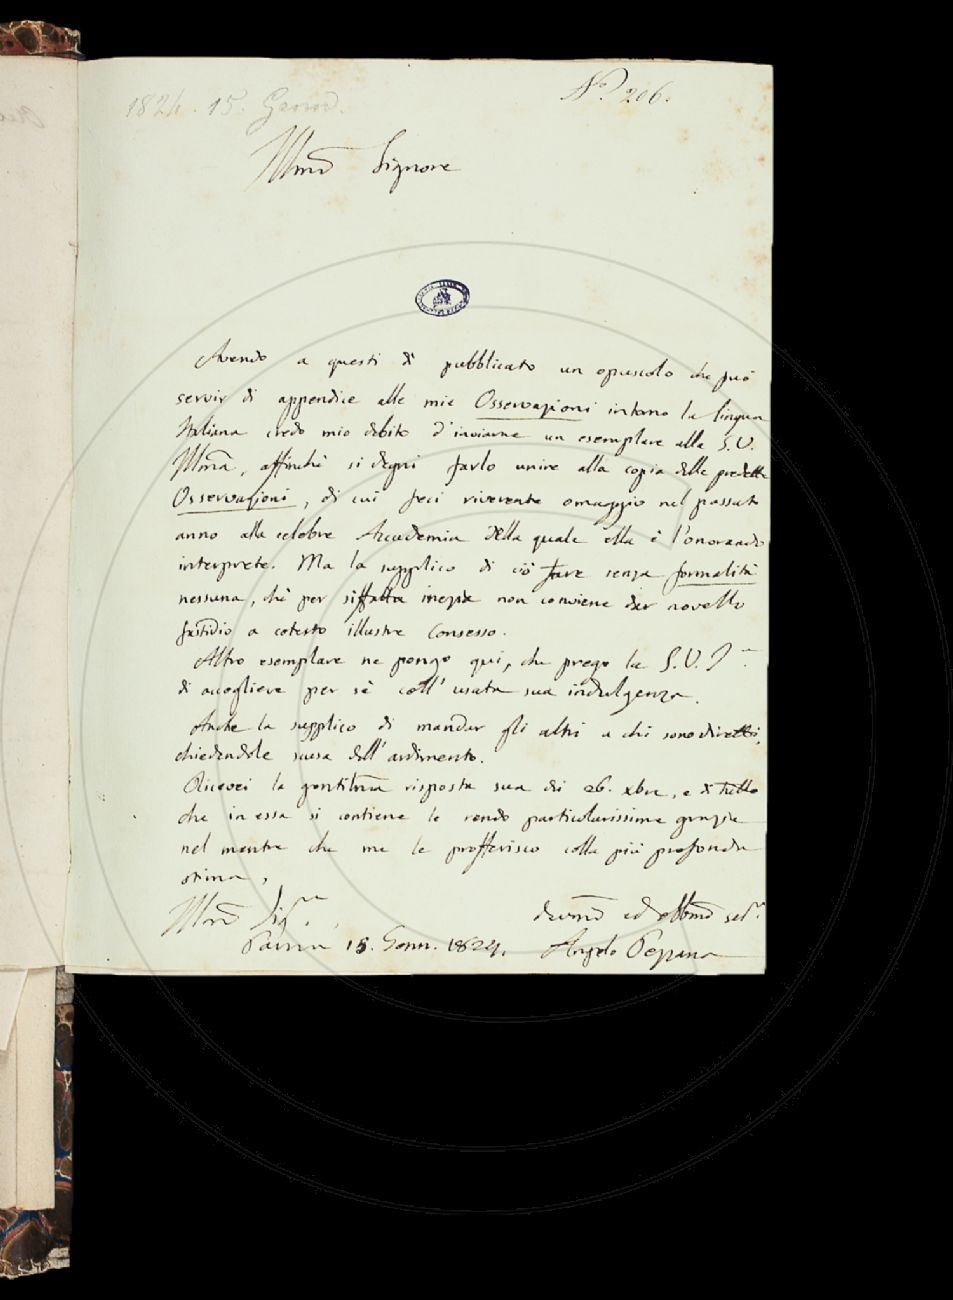 1824. 15. Genn.
N.º 206.
Illmo Signore
Avendo a questi dì pubblicato un opuscolo che può
servir di appendice alle mie Osservazioni intorno la lingua
Italiana credo mio debito d'inviarne un esemplare alla S.V.
Illma, affinchè si degni farlo unire alla copia delle predette
Osservazioni, di cui feci riverente omaggio nel passato
anno alla celebre Accademia della quale ella è l'onorando
interprete. Ma la supplico di ciò fare senza formalità
nessuna, chè per siffatta inezia non conviene dar novello
fastidio a cotesto illustre Consesso.
Altro esemplare ne pongo qui, che prego la S.V.I.
di accogliere per sè coll'usata sua indulgenza.
Anche la supplico di mandar gli altri a chi sono diretti,
chiedendole scusa dell'ardimento.
Ricevei la gentilma risposta sua dei 26. xbre, e di tutto
che in essa si contiene le rendo particolarissime grazie
nel mentre che me le profferisco colla più profonda
stima,
Illmo Sigre
devmo ed obbmo serv.
Parma 15. Genn. 1824.
Angelo Pezzana